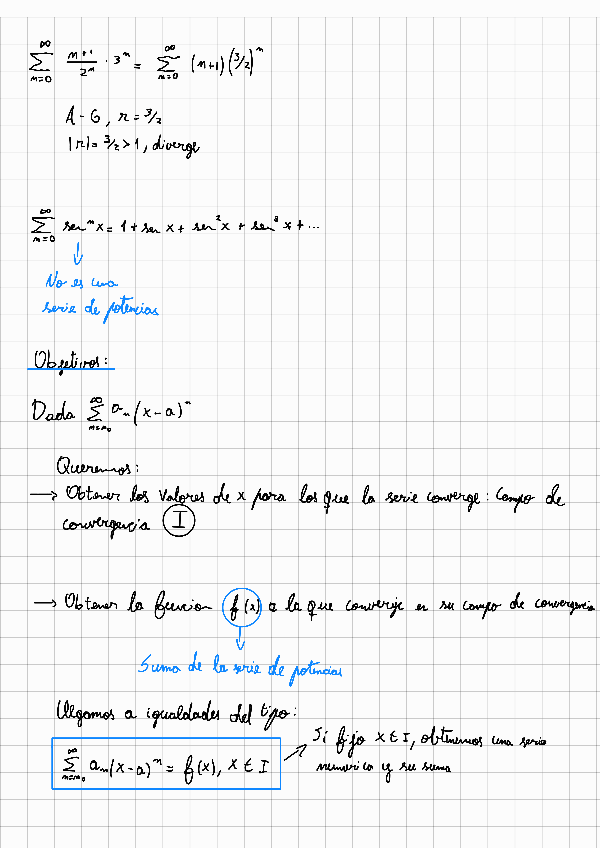 ∑_{n=0}^{∞} \frac{n+1}{2^n} · 3^n = ∑_{n=0}^{∞} (n+1)(3/2)^n
A-G, r = 3/2
|r| = 3/2 > 1, diverge
∑_{n=0}^{∞} sen^n x = 1 + sen x + sen^2 x + sen^3 x + ...
No es una
serie de potencias
Objetivos:
Dada ∑_{n=n_0}^{∞} a_n (x-a)^n
Queremos:
→ Obtener los valores de x para los que la serie converge: Campo de
convergencia I
→ Obtener la funcion f(x) a la que converge en su campo de convergencia
Suma de la serie de potencias
Llegamos a igualdades del tipo:
∑_{n=n_0}^{∞} a_n (x-a)^n = f(x), x ∈ I
Si fijo x ∈ I, obtenemos una serie
numerica y su suma